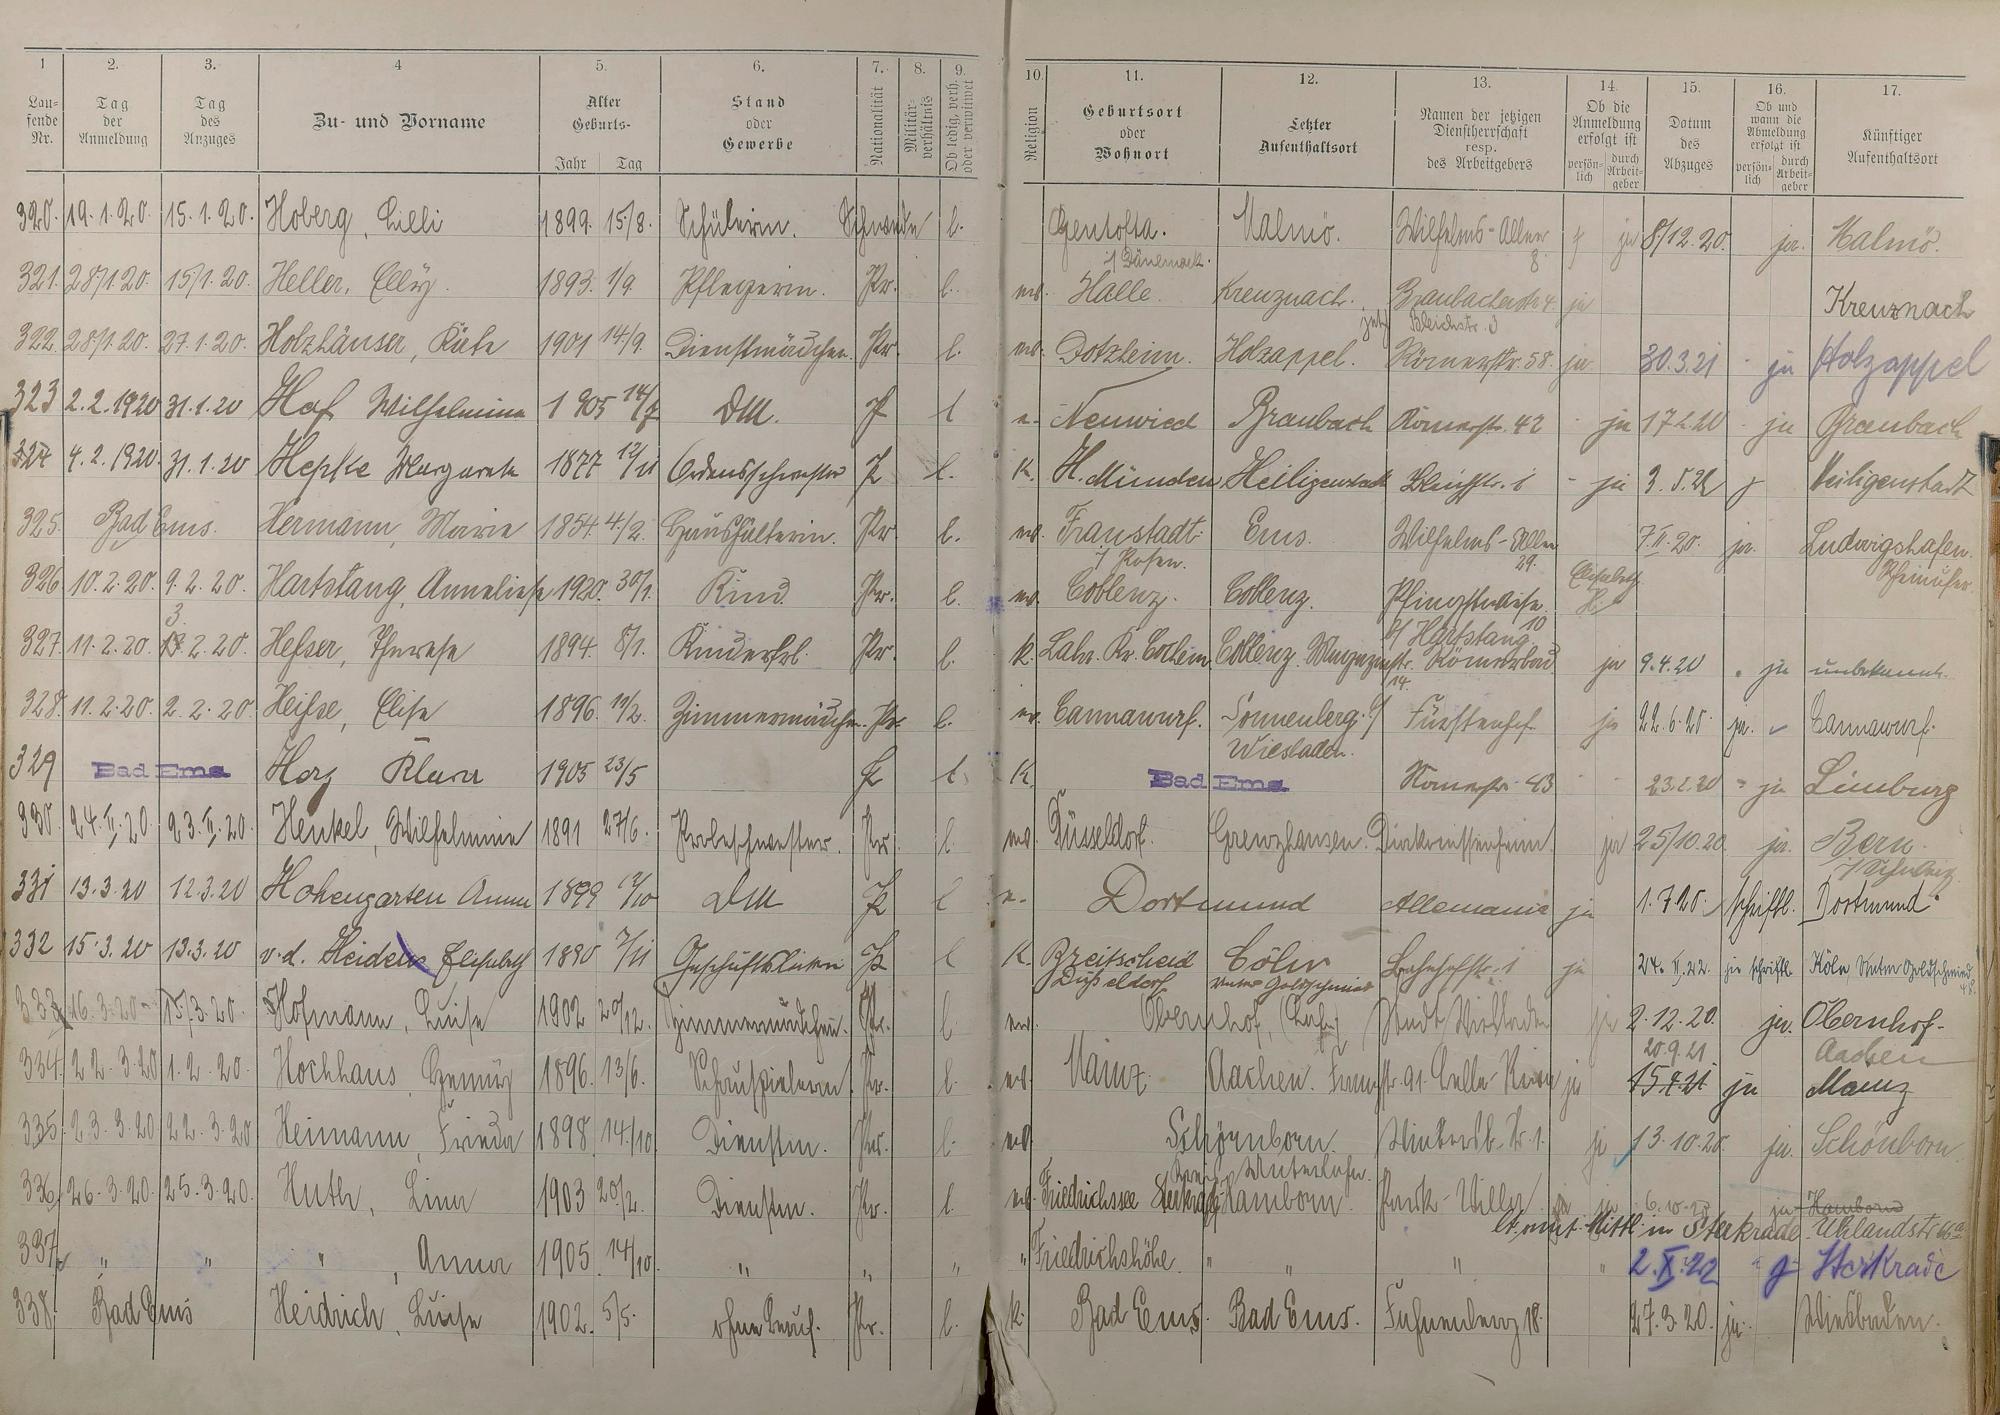 1 2. 3. 4 5. 6. 7. 8. 9. 10. 11. 12. 13. 14. 15. 16. 17.
Lau-fende Nr. Tag der Anmeldung Tag des Anzuges Zu- und Vorname Alter Geburts- Jahr Tag Stand oder Gewerbe Nationalität Militär-verhältnis Ob ledig, verh. oder verwitwet Religion Geburtsort oder Wohnort Letzter Aufenthaltsort Namen der jetzigen Dienstherrschaft resp. des Arbeitgebers Ob die Anmeldung erfolgt ist persön-lich durch Arbeit-geber Datum des Abzuges Ob und wann die Abmeldung erfolgt ist persön-lich durch Arbeit-geber Künftiger Aufenthaltsort
320. 19.1.20. 15.1.20. Hoberg, Lilli 1899. 15/8. Schülerin. Schwede l. Gentofta. Malmö. Wilhelms-Allee 8. ja 8/12.20. ja. Malmö.
i/ Dänemark.
321. 28/1.20. 15/1.20. Heller, Elly. 1893. 1/9. Pflegerin. Pr. l. ev. Halle. Kreuznach. Braubacherstr 4. ja Kreuznach
jetzt Bleichstr. 3
322. 28/1.20. 27.1.20. Holzhäuser, Käte 1901 14/9. Dienstmädchen. Pr. l. ev. Dotzheim. Holzappel. Römerstr. 58. ja 30.3.21 - ja Holzappel
323 2.2.1920 31.1.20 Haf Wilhelmine 1905 DM. P l e. Neuwied Braubach Römerstr. 42 - ja 17.2.20 - ja Braubach
324 4.2.1920. 31.1.20 Hepke Margarete 1877 12/11 Ordensschwester P l. K. H. Münden Heiligenstadt Bleichstr. 1 - ja Heiligenstadt
325. Bad Ems. Hermann, Marie 1854. 4/2. Haushälterin. Pr. l. ev. Fraustadt. Ems. Wilhelms-Allee 29. 7.II.20. ja. Ludwigshafen.
i/ Posen. Rheinufer
326. 10.2.20. 9.2.20. Hartstang, Anneliese 1920. 30/1. Kind Pr. l. ev. Coblenz. Coblenz. Pfingstwiese 10 Elisabeth H.
b/ Hartstang
327. 11.2.20. 3. 2.20. Hesser, Therese 1894. 8/1. Kinderfrl. Pr. l. k. Lahr. Kr. Cochem Coblenz. 14. Römerbad ja 9.4.20 ja unbekannt.
328. 11.2.20. 2.2.20. Heise, Elise 1896. 11/2. Zimmermädchen. Pr. l. ev. Cannawurf. Sonnenberg b/ Fürstenhof ja 22.6.20. ja. Cannawurf.
Wiesbaden.
329 Bad Ems Herz Klara 1905 23/5 P l K. Bad Ems Römerstr. 43 - - 23.2.20 - ja Limburg
330. 24.II.20. 23.II.20. Henkel, Wilhelmine 1891 27/6. Probeschwester. Pr. l. ev. Düsseldorf. Grenzhausen. Diakonissenheim. ja 25/10.20. ja. Bern.
i/ Schweiz.
331 13.3.20 12.3.20 Hohengarten Anna 1899 12/10 DM P l e. Dortmund Allemania ja 1.7.20. schriftl. Dortmund.
332 15.3.20 13.3.20 v.d. Heiden Elisabeth 1890 7/11 P l K. Breitscheid Cöln Bahnhofstr. 1 ja 24. II.22. ja schriftl. Köln, Unter Goldschmied 48.
Düsseldorf Unter Goldschmied
333 16.3.20. 15/3.20. Hofmann, Luise 1902 20/12. Zimmermädchen. Pr. l ev. Obernhof, (Lahn) Stadt Wiesbaden ja 2.12.20. ja. Obernhof.
20.9.21 Aachen
334. 22.3.20 1.2.20. Hochhaus, 1896. 13/6. Schauspielerin. Pr. l. ev. Mainz. Aachen. ja 15.4.21 ja Mainz
335. 23.3.20 22.3.20 Heimann, Frieda 1898. 14/10. Dienstm. Pr. l. ev. Schörnborn. Wintersb. Str. 1. ja 13.10.20. ja. Schönborn.
Kreis Unterlahn.
336. 26.3.20. 25.3.20. Huth, Lina 1903 20/2. Dienstm. Pr. l. ev. Friedrichssee Sterkrade Hamborn. Park-Villa ja ja 6.10.20 ja Hamborn
lt. amt. Mittl. in Sterkrade. Uhlandstr.
337. " " " , Anna 1905. 14/10. " " " " Friedrichshöhe. " " " " 2.X.22 " ja Sterkrade
338. Bad Ems Heidrich, Luise 1902. 5/5. ohne Beruf. Pr. l. k. Bad Ems. Bad Ems. 18. 27.3.20. ja. Wiesbaden.